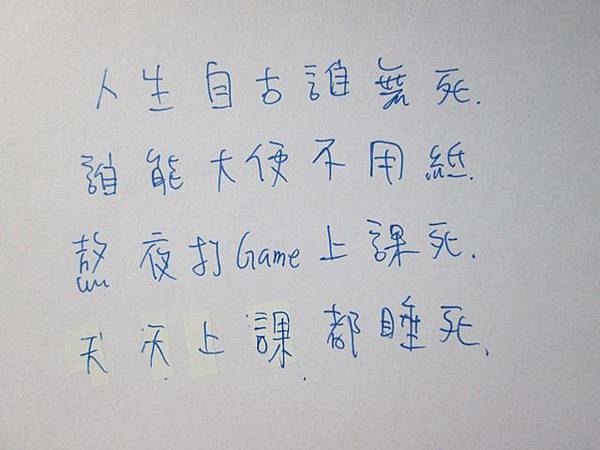 人生自古誰無死.
誰能大便不用紙.
熬夜打Game上課死.
天天上課都睡死.